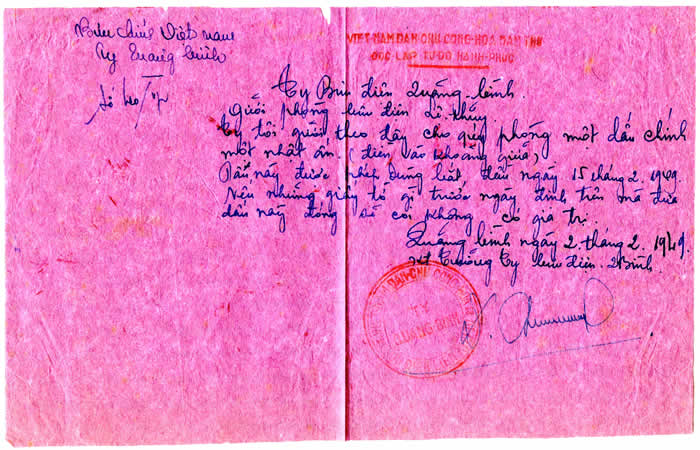 Bưu chính Việt nam
Ty Quảng bình
Số
VIỆT-NAM DÂN CHỦ CỘNG-HÒA DÂN THỨ
ĐỘC-LẬP TỰ-DO HẠNH-PHÚC
Ty Bưu điện Quảng-bình.
gửi phòng bưu điện Lệ thủy.
Ty tôi gửi theo đây cho quý phòng một dấu chính
một nhật ấn. (điền vào khoảng giữa)
Dấu này được phép dùng bắt đầu ngày 15 tháng 2. 1949.
Nếu những giấy tờ gì trước ngày định trên mà đưa
dấu này đóng sẽ coi không có giá trị.
Quảng bình ngày 2. tháng 2. 1949.
Trưởng Ty bưu điện. Q Bình.
QUẢNG BÌNH